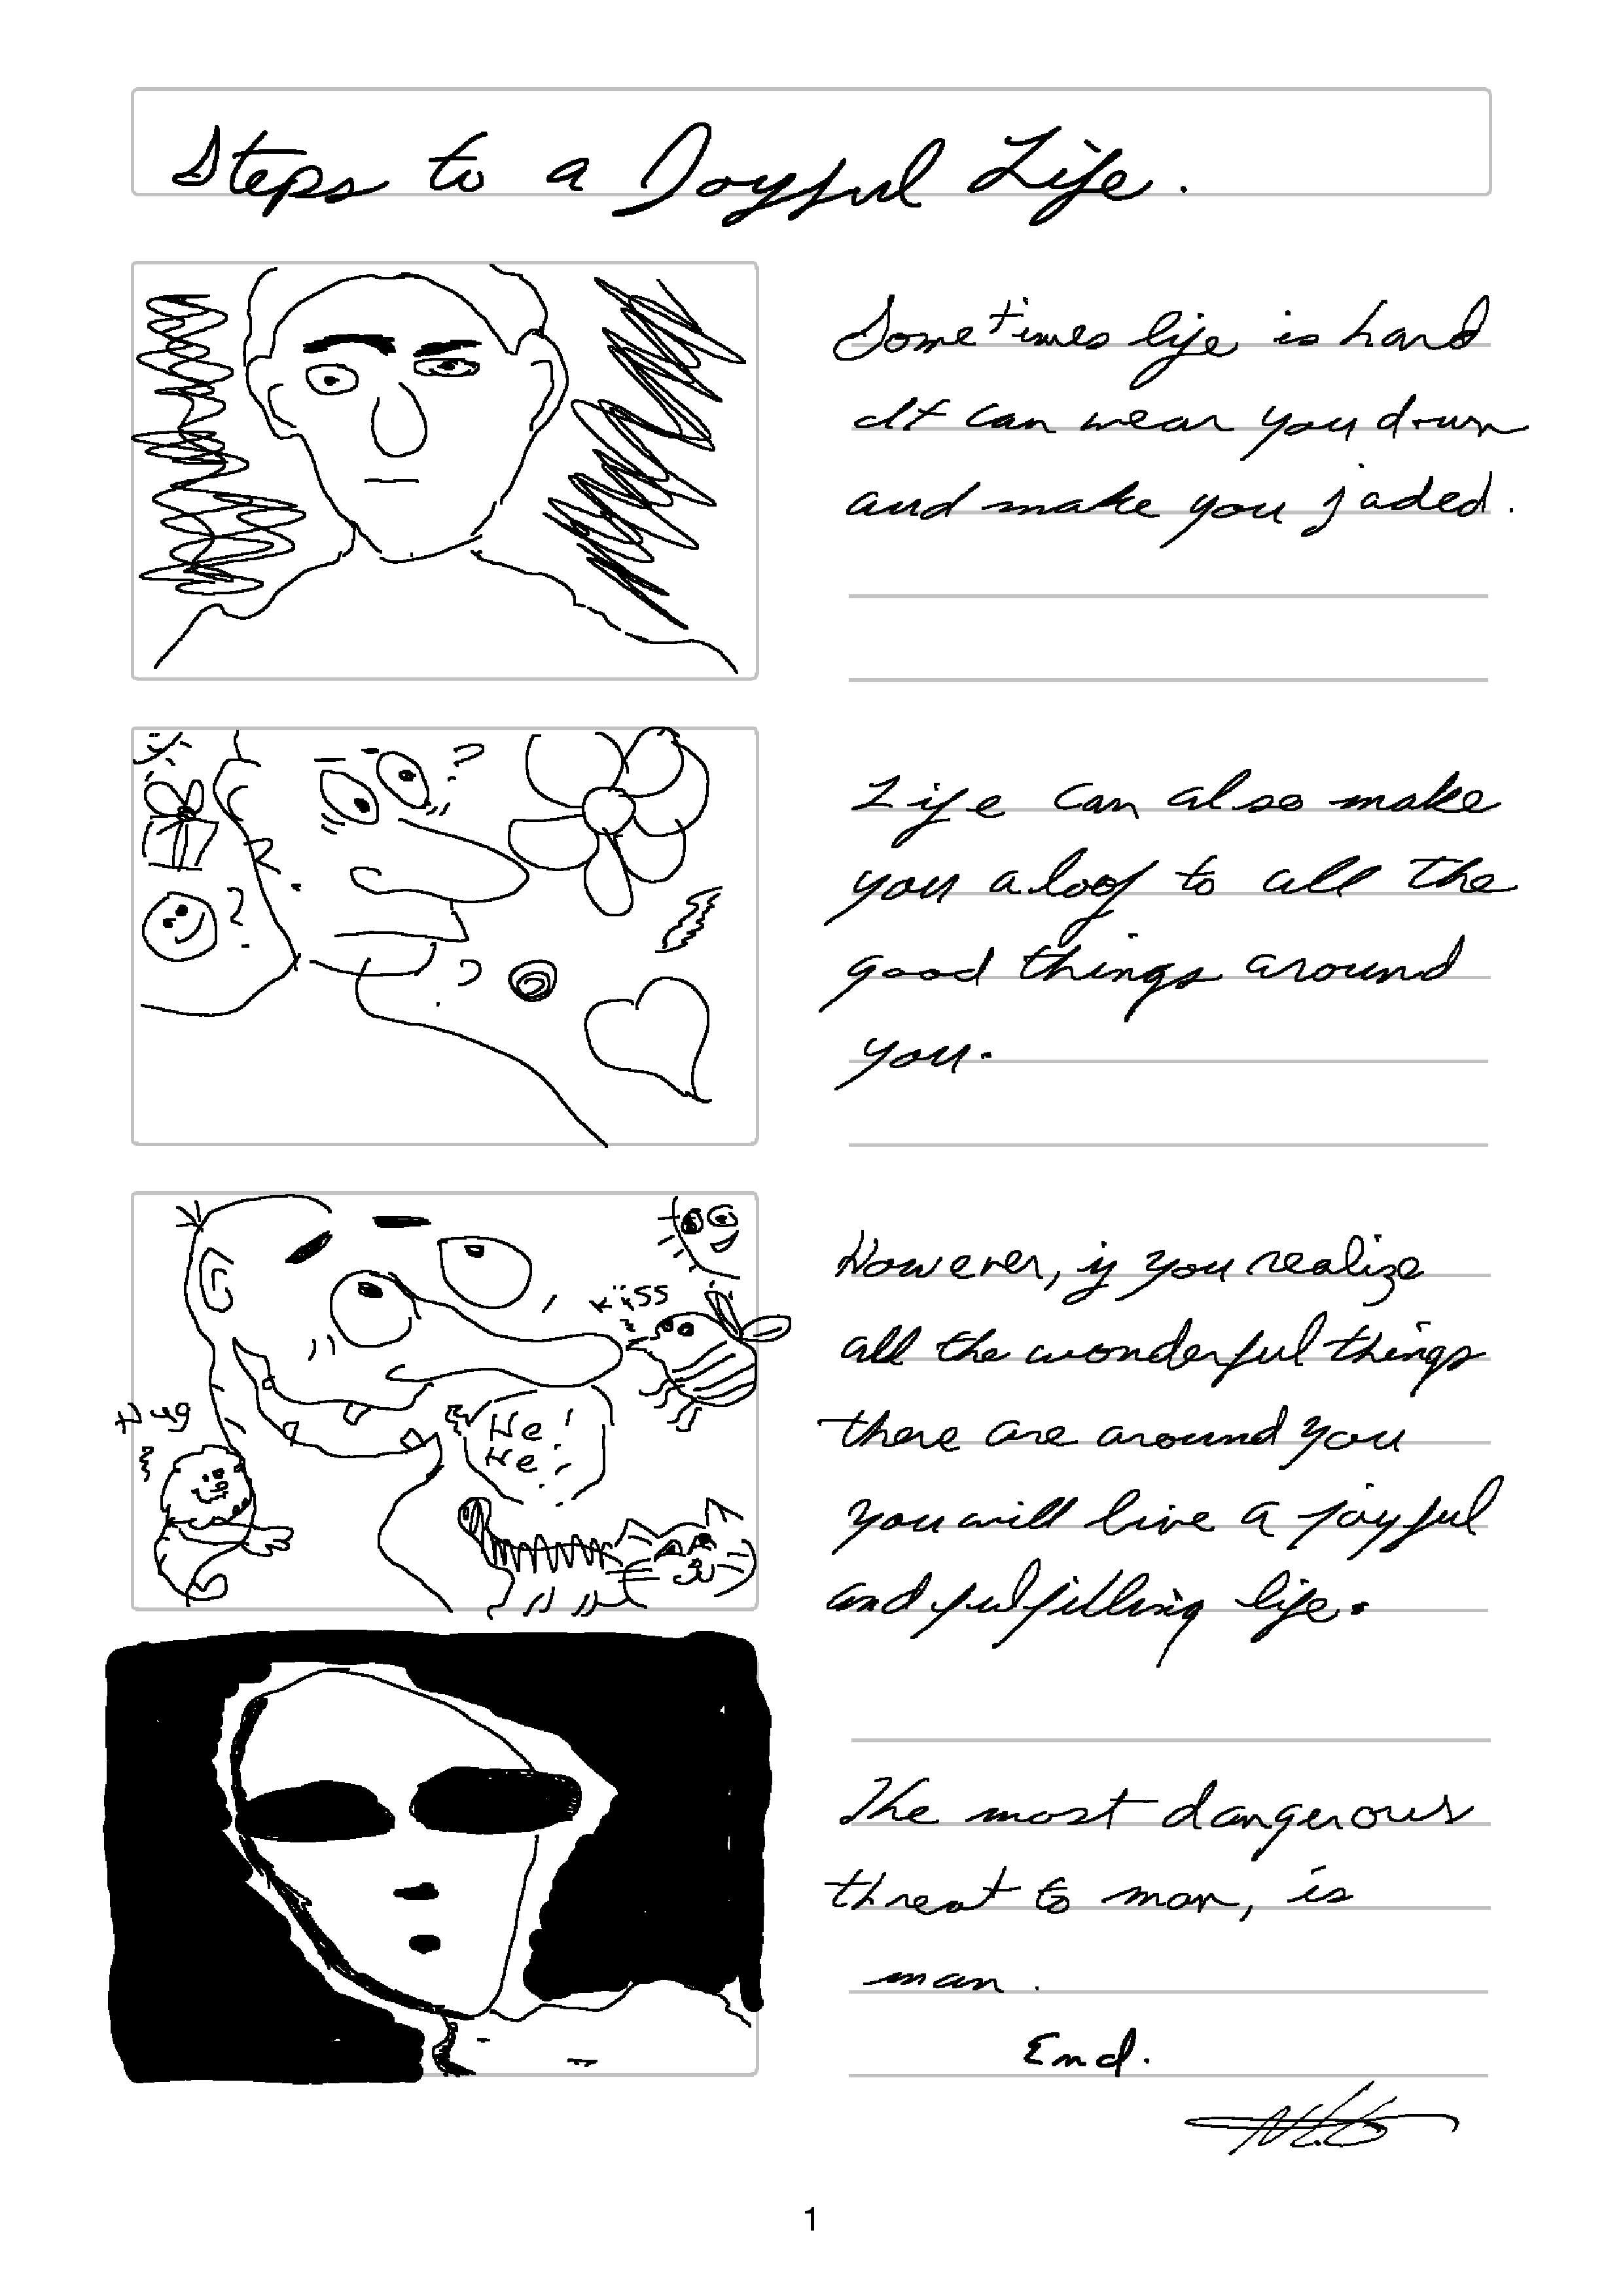 Steps to a Joyful Life.
Sometimes life is hard
It can wear you down
and make you jaded.
?
?
?
Life can also make
you aloof to all the
good things around
you.
Kiss
Hug
He!
He!
However, if you realize
all the wonderful things
there are around you
you will live a joyful
and fulfilling life.
The most dangerous
threat to man, is
man.
End.
1